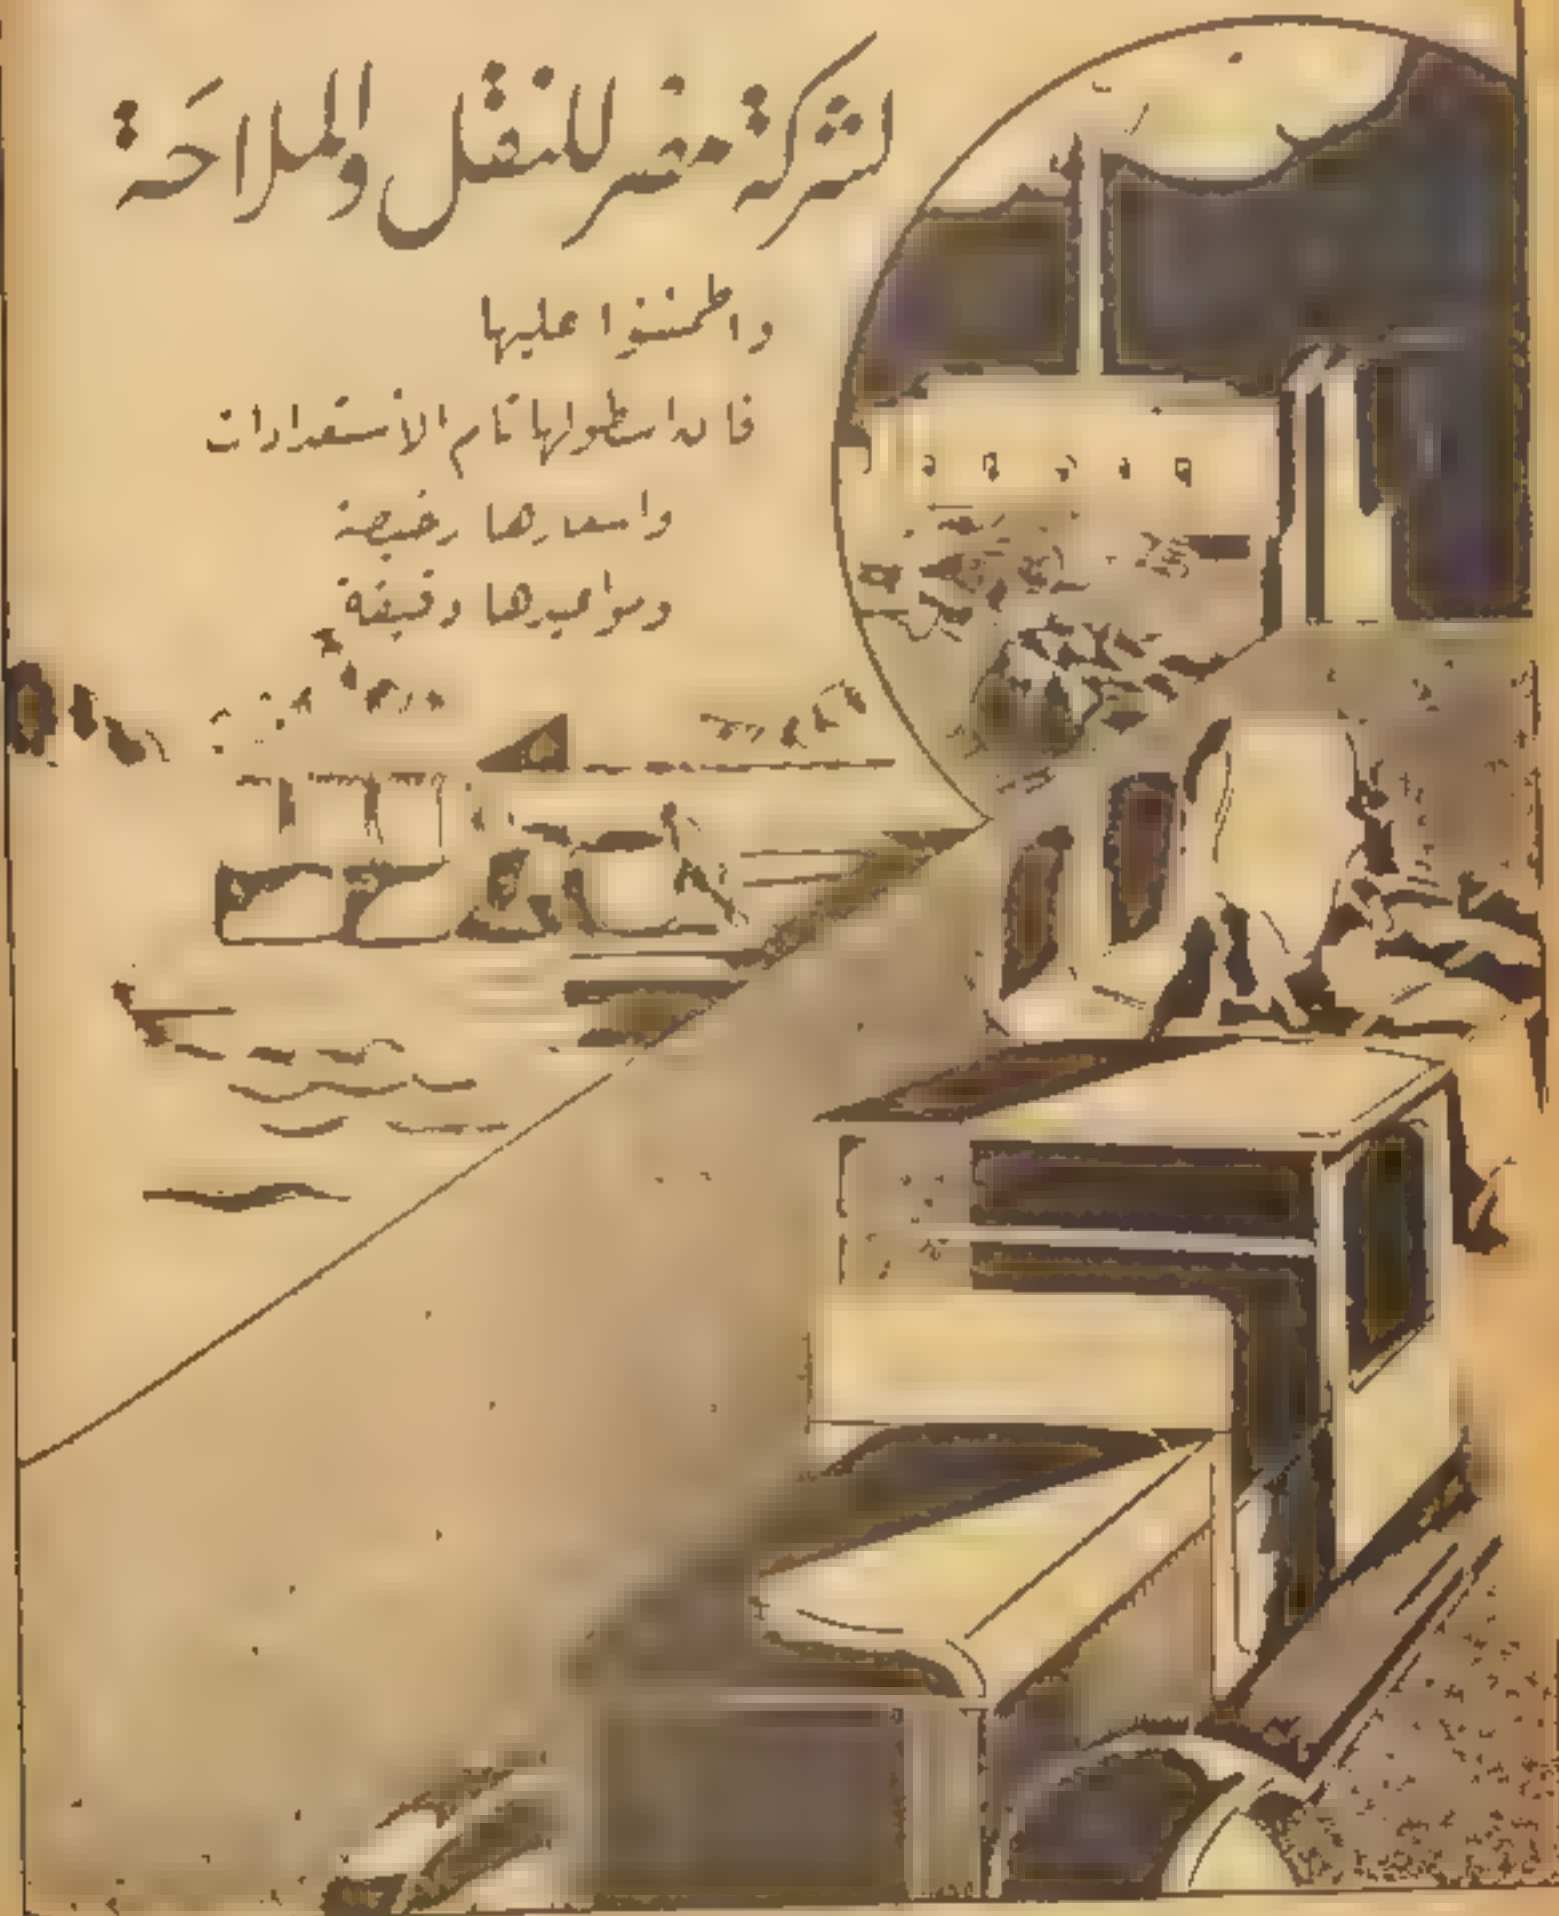 لشركة مصر للنقل والملاحة
واطمئنوا عليها
فان اسطولها تام الأستعدادات
واسعارها رخيصة
ومواعيدها دقيقة